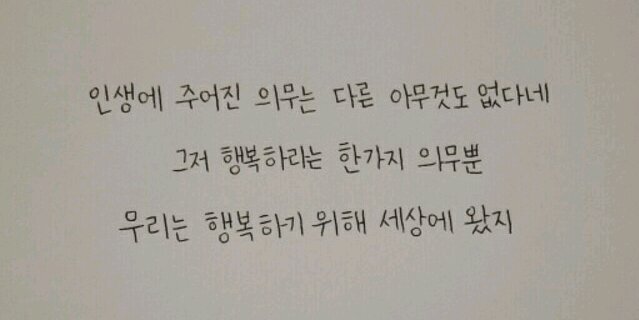 인생에 주어진 의무는 다른 아무것도 없다네
그저 행복하라는 한가지 의무뿐
우리는 행복하기 위해 세상에 왔지